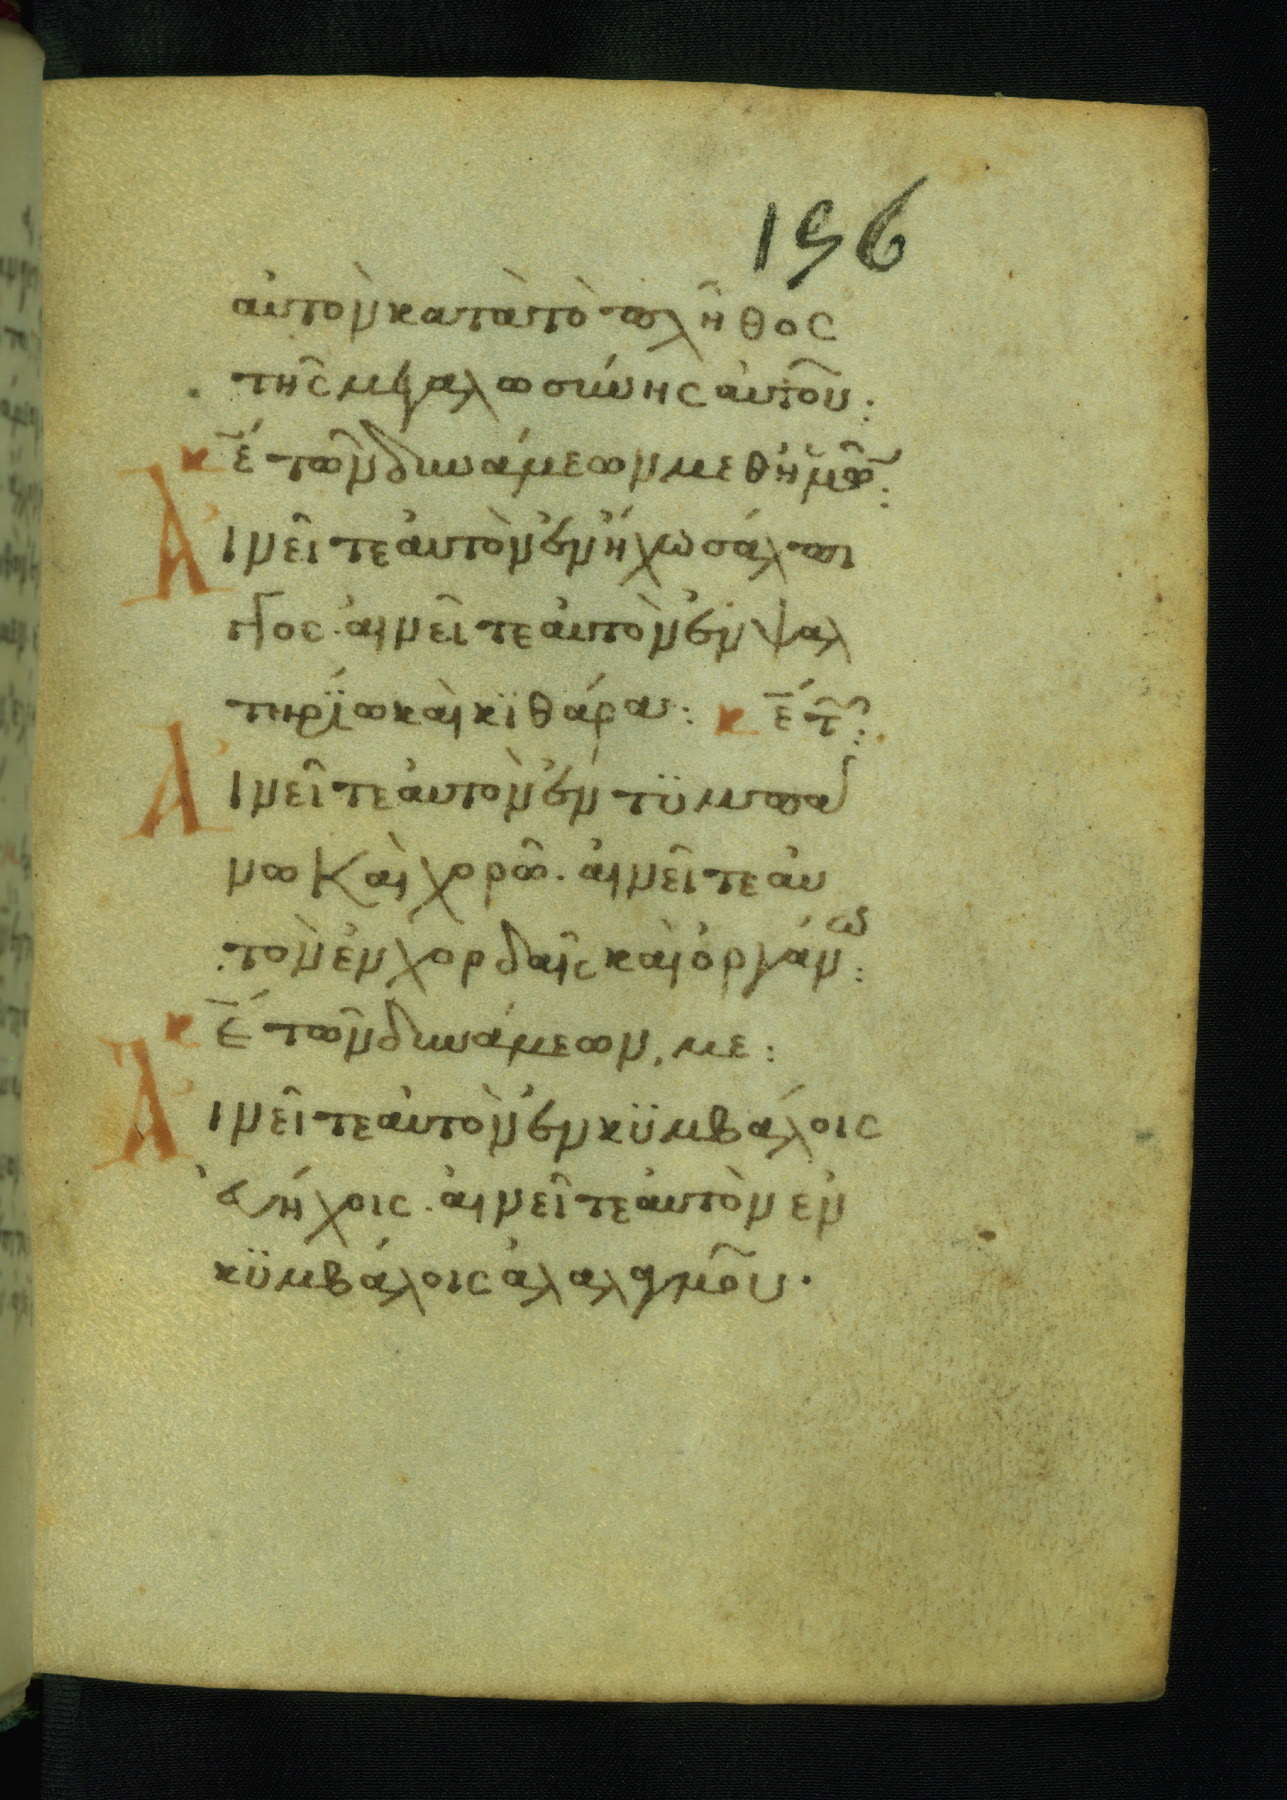 196
αὐτὸν κατὰ τὸ πλῆθος
τῆς μεγαλωσύνης αὐτοῦ:
κ̅ε̅ τῶν δυνάμεων μεθ ἡμῶ̅:
Αἰνεῖτε αὐτὸν ἐν ἤχω σάλπι
γγος· αἰνεῖτε αὐτὸν ἐν ψαλ
τηρΐω καὶ κϊθάρα: κ̅ε̅ τ̅:
Αἰνεῖτε αὐτὸν ἐν τϋμπά
νω καὶ χορῶ· αἰνεῖτε αὐ
τὸν ἐν χορδαῖς καὶ ὀργάνω:
κ̅ε̅ τῶν δυνάμεων, με:
Αἰνεῖτε αὐτὸν ἐν κϋμβάλοις
εὐήχοις· αἰνεῖτε αὐτὸν ἐν
κϋμβάλοις ἀλαλαγμοῦ·